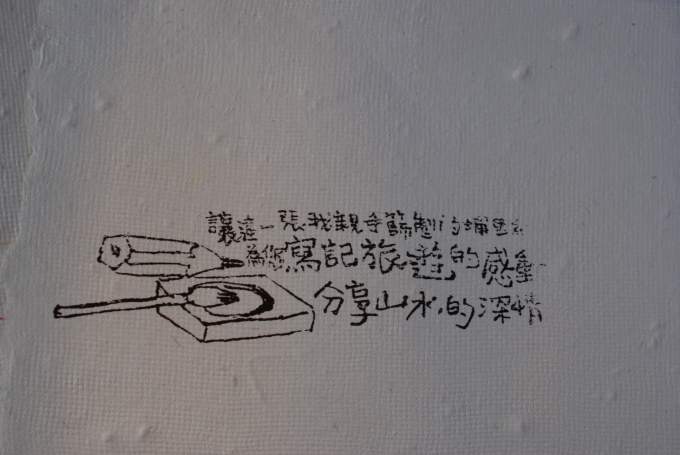 讓這一張我親手篩製的埔里紙
為您寫記旅遊的感動
分享山水的深情